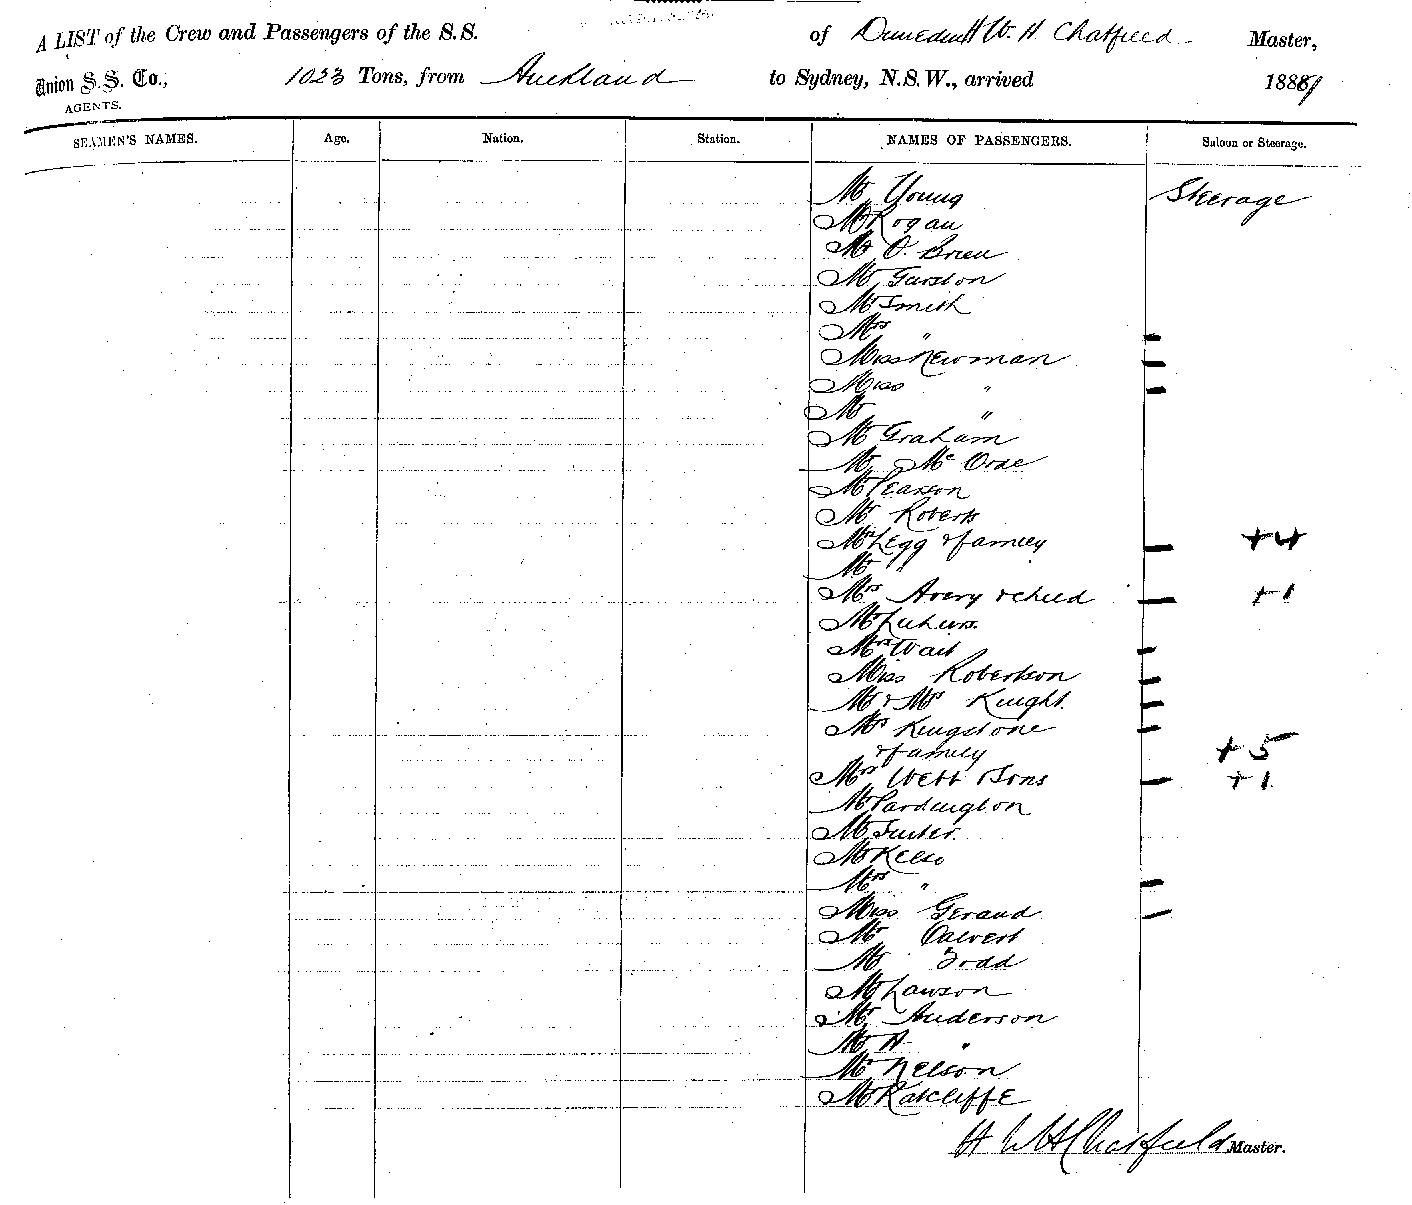 A LIST of the Crew and Passengers of the S.S. of Dunedin H W. H Chatfield Master,
Union S.S. Co., 1023 Tons, from Auckland to Sydney, N.S.W., arrived 1889
AGENTS.
SEAMEN'S NAMES. Age. Nation. Station. NAMES OF PASSENGERS. Saloon or Steerage.
Mr Young Steerage
Mr Rogan
Mr O. Brien
Mr Garston
Mr Smith
Mrs "
Miss Newman
Miss "
Mr "
Mr Graham
Mr Mc
Mr Pearson
Mr Roberts
Mr Legg & family +4
Mr "
Mrs Avery & child +1
Mr
Mrs Wait
Miss Robertson
Mr & Mrs Knight.
Mrs Kingstone
& family +5
Mrs Webb & Sons +1
Mr Pardington
Mr
Mr Kelso
Mrs "
Miss Geraud
Mr Calvert
Mr Todd
Mr Lawson
Mr Anderson
Mr A "
Mr Nelson
Mr Ratcliffe
H W H Chatfield Master.